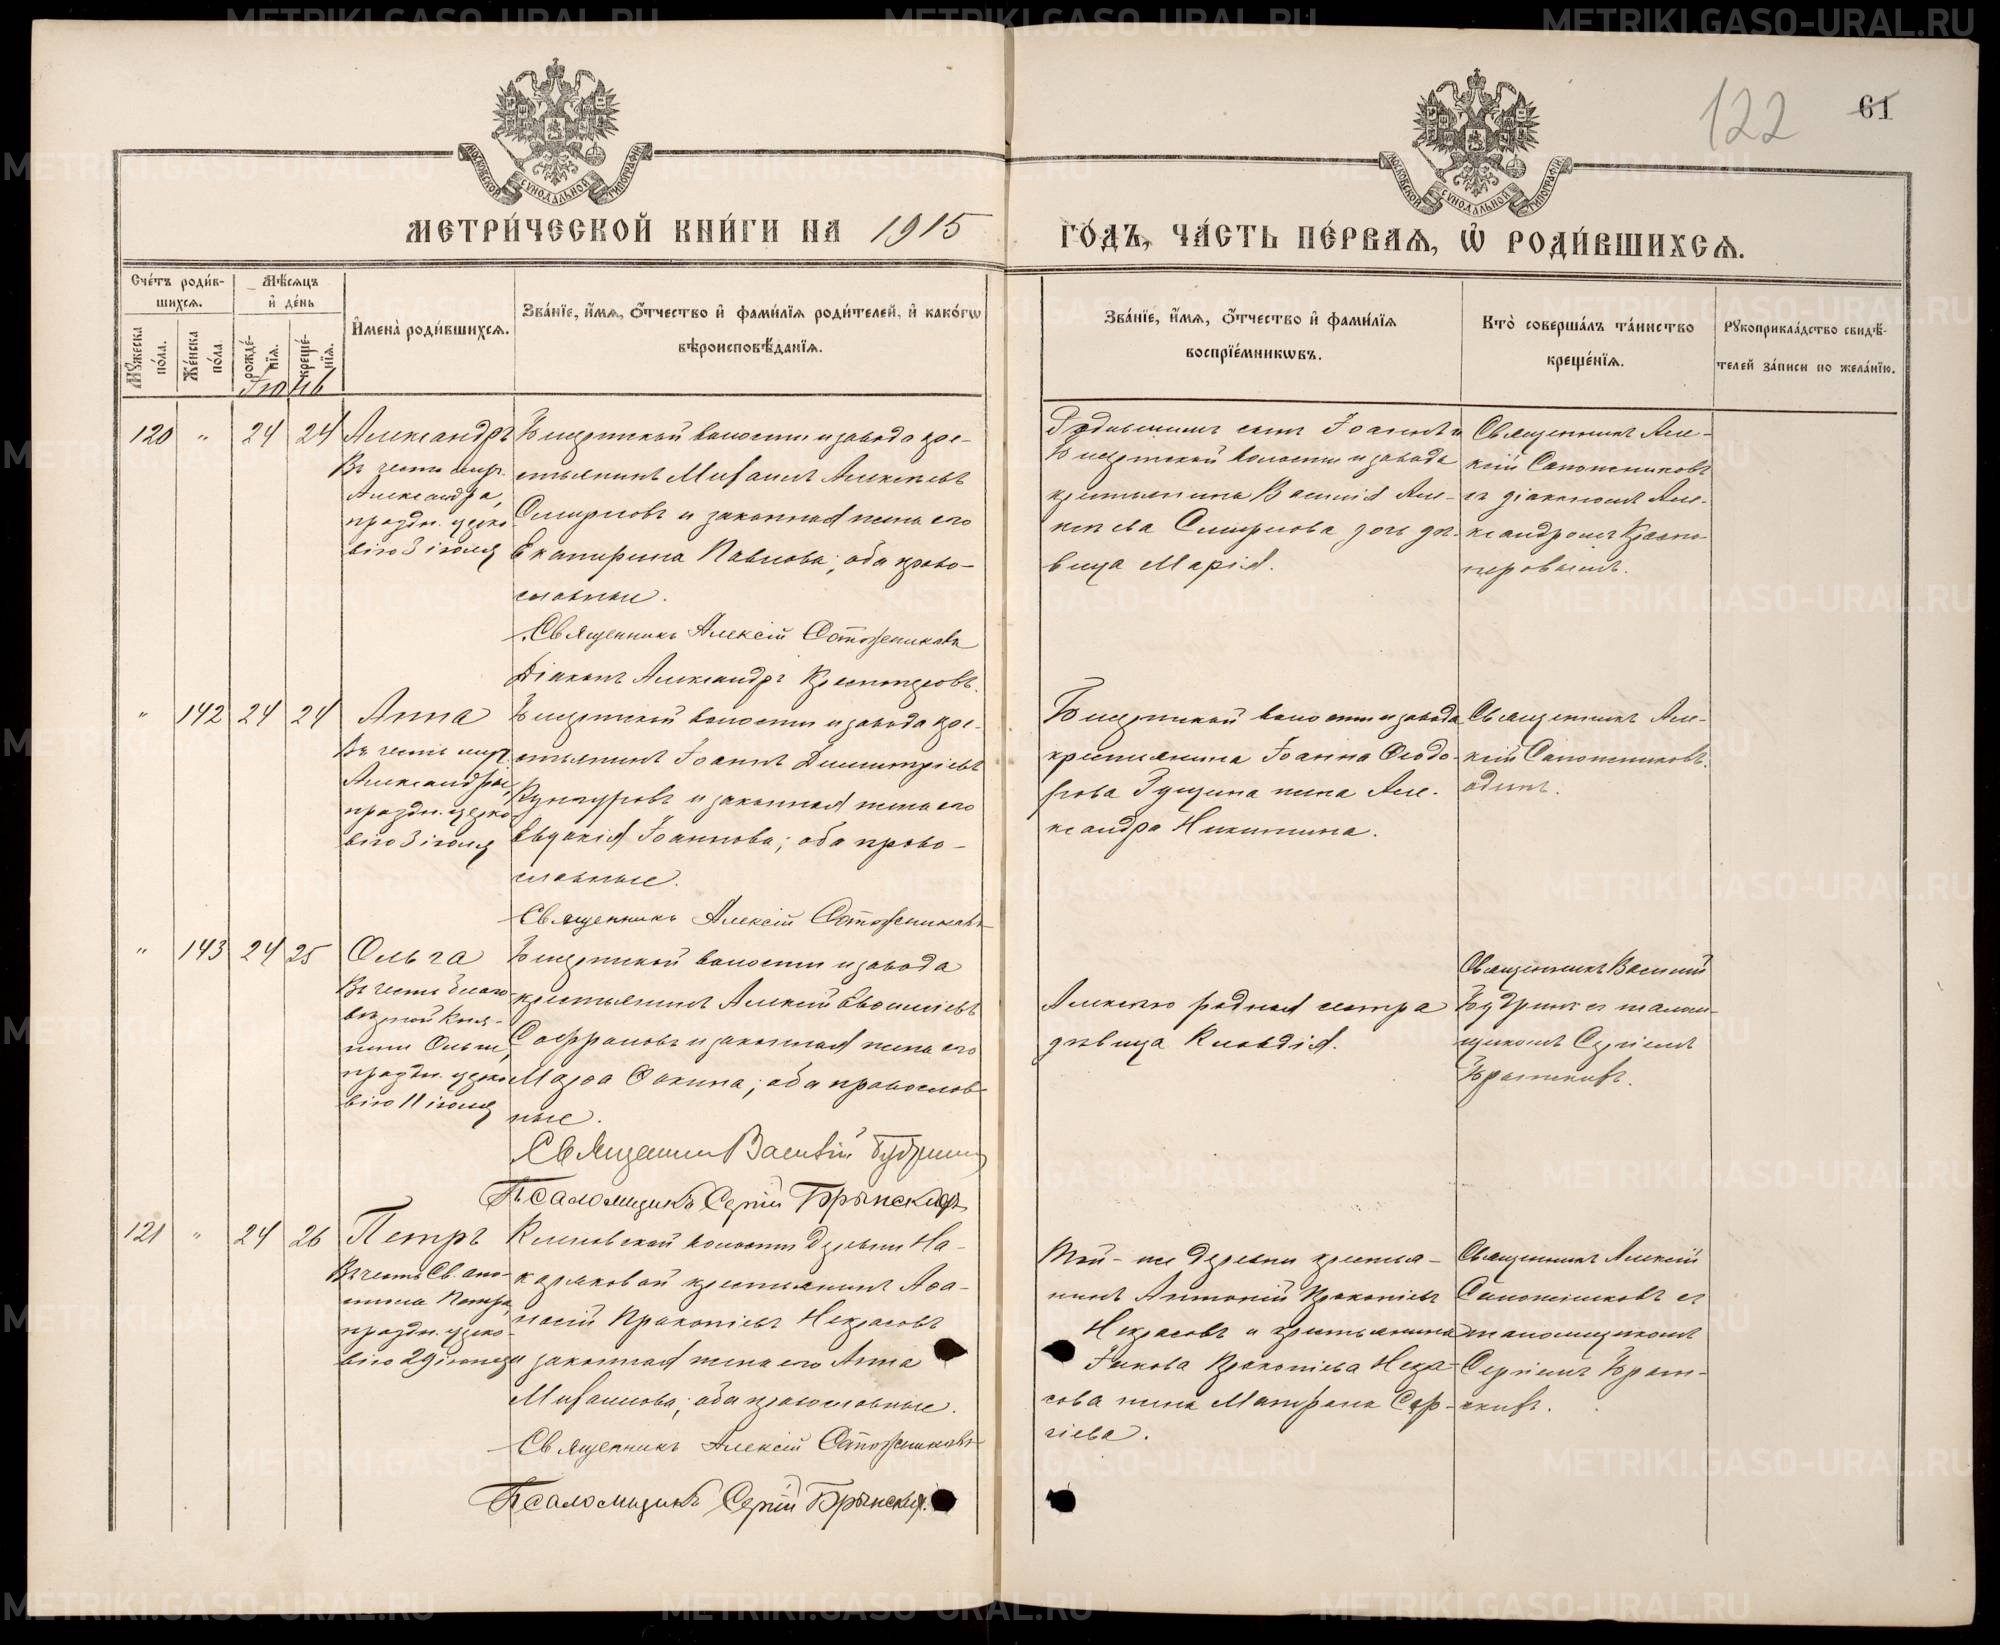 122
61
МОСКОВСКОЙ СѴНОДАЛЬНОЙ ТИПОГРАФІИ
МОСКОВСКОЙ СѴНОДАЛЬНОЙ ТИПОГРАФІИ
МЕТРИ́ЧЕСКОЙ КНИ́ГИ НА 1915
ГО́ДЪ, ЧА́СТЬ ПЕ́РВАѦ, Ѡ҆ РОДИ́ВШИХСѦ.
Сче́тъ роди́в-
шихсѧ.
Мѣ́сѧцъ
и҆ де́нь
Мꙋ́жеска по́ла.
Же́нска по́ла.
рожде́-нїѧ.
креще́-нїѧ.
И҆мена̀ роди́вшихсѧ.
Зва́нїе, и҆́мѧ, ѻ҆́тчество и҆ фами́лїѧ роди́телей, и҆ како́гѡ
вѣроисповѣ́данїѧ.
Зва́нїе, и҆́мѧ, ѻ҆́тчество и҆ фами́лїѧ
воспрїе́мникѡвъ.
Кто̀ соверша́лъ та́инство
креще́нїѧ.
Рꙋкоприкла́дство свидѣ́-
телей за́писи по жела́нїю.
Іюнь
120 " 24 24 Александръ
Въ честь муч.
Александра,
праздн. церко-
вію 3 іюля
Бисертской волости и завода кре-
стьянинъ Михаилъ Алексѣевъ
Смирновъ и законная жена его
Екатерина Павлова; оба право-
славные.
Священникъ Алексій Сапожниковъ
Діаконъ Александръ
Родившимъ сынъ Іоаннъ и
Бисертской волости и завода
крестьянина Василія Але-
ксѣева Смирнова дочь дѣ-
вица Марія.
Священникъ Але-
ксій Сапожниковъ
съ діакономъ Але-
ксандромъ
" 142 24 24 Анна
Въ честь муч.
Александры,
праздн. церко-
вію 3 іюля
Бисертской волости и завода кре-
стьянинъ Іоаннъ Димитріевъ
Кунгуровъ и законная жена его
Евдокія Іоаннова; оба право-
славные.
Священникъ Алексій Сапожниковъ
Бисертской волости и завода
крестьянина Іоанна Ѳеодо-
рова жена Але-
ксандра Никитина.
Священникъ Але-
ксій Сапожниковъ
одинъ.
" 143 24 25 Ольга
Въ честь благо-
вѣрной Кня-
гини Ольги,
праздн. церко-
вію 11 іюля
Бисертской волости и завода
крестьянинъ Алексій
Софроновъ и законная жена его
Марѳа Ѳокина; оба православ-
ные.
Священникъ Василій Будринъ
Псаломщикъ Сергій Брынскихъ
родная сестра
дѣвица Клавдія.
Священникъ Василій
Будринъ съ псалом-
щикомъ Сергіемъ
121 " 24 26 Петръ
Въ честь Св. апо-
стола Петра,
праздн. церко-
вію 29 іюня
Кленовской волости деревни
крестьянинъ Аѳа-
насій Прокопіевъ Некрасовъ
и законная жена его Анна
Михаилова; оба православные.
Священникъ Алексій Сапожниковъ
Псаломщикъ Сергій Брынскихъ.
Той-же деревни крестья-
нинъ Антоній Прокопіевъ
Некрасовъ и крестьянина
Іакова Прокопіева Некра-
сова жена Матрона Сер-
гіева.
Священникъ Алексій
Сапожниковъ съ
псаломщикомъ
Сергіемъ